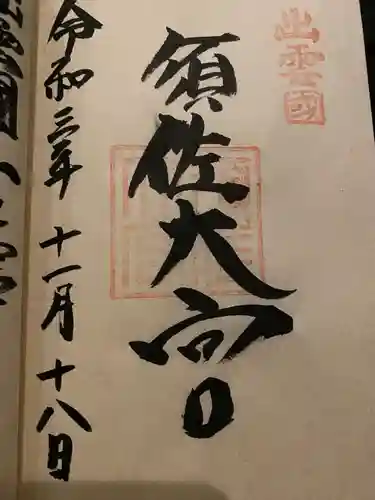 出雲國
須佐大宮
令和三年十一月十八日